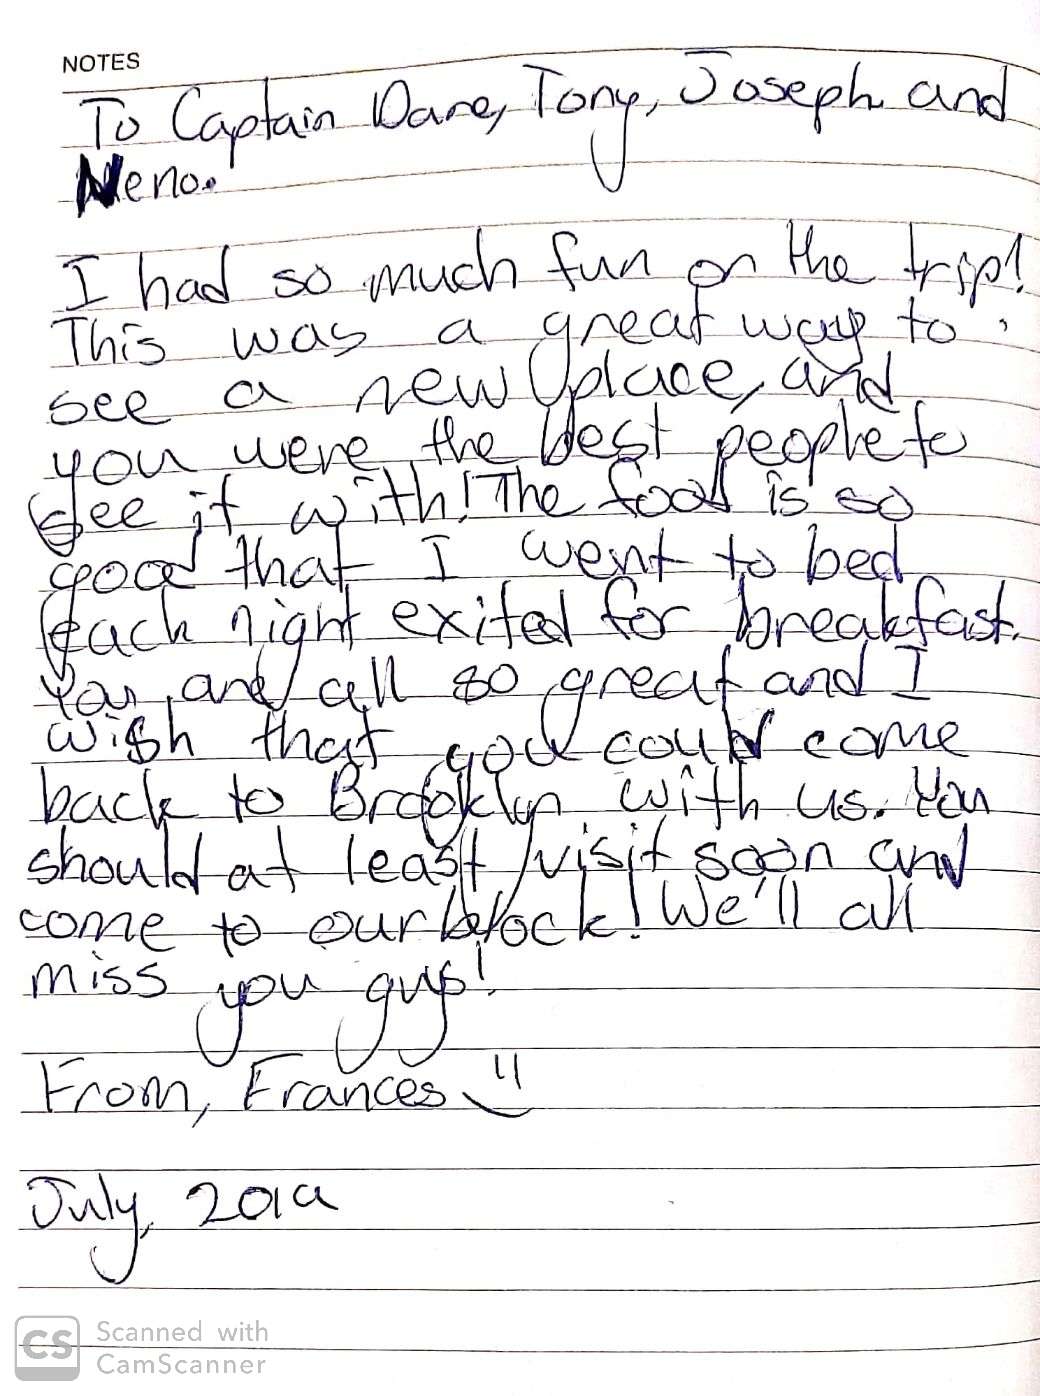 NOTES
To Captain Dane, Tony, Joseph and
Neno.
I had so much fun on the trip!
This was a great way to
see a new place, and
you were the best people to
see it with! The food is so
good that I went to bed
each night exited for breakfast.
You are all so great and I
wish that you could come
back to Brooklyn with us. You
should at least visit soon and
come to our block! We'll all
miss you guys!
From, Frances
July, 2019
CS Scanned with
CamScanner